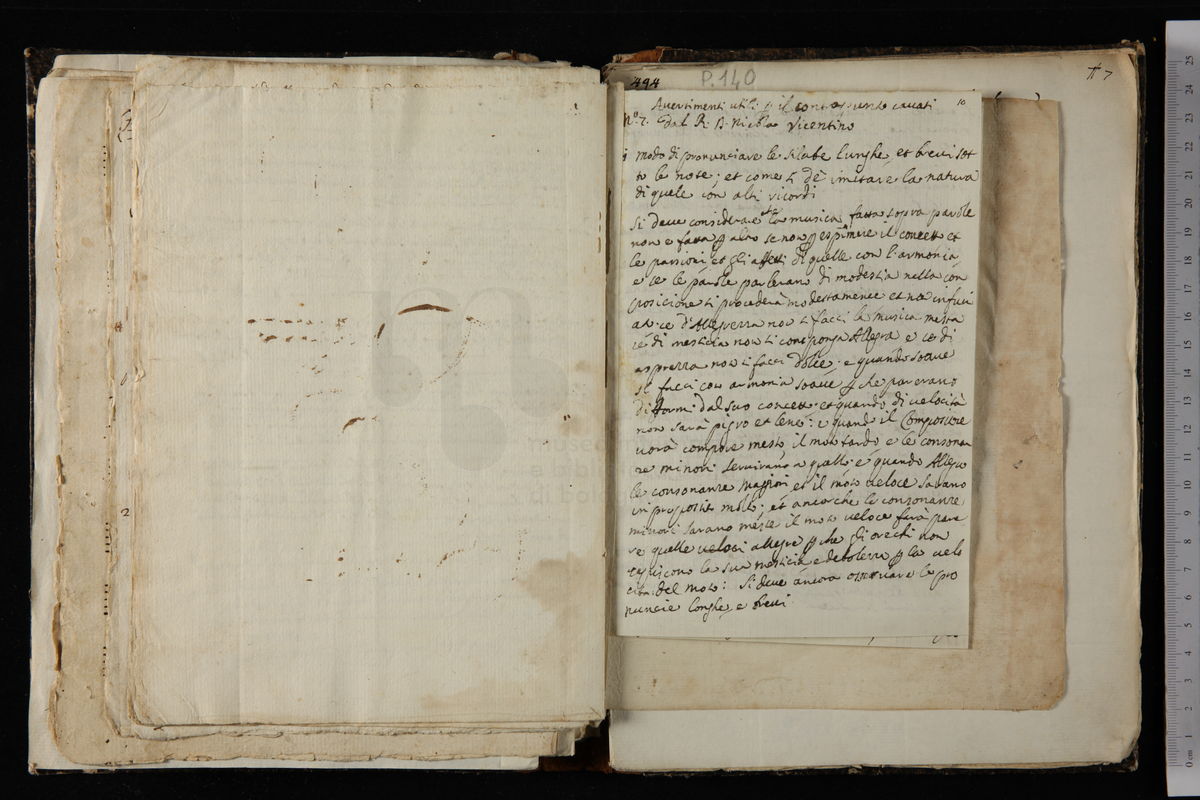 494 P. 140 # 7
10
Avertimenti utili p il contrapunto cavati
N.º 7. dal R. D. Nicola Vicentino
1 modo di pronunciare le silabe lunghe, et brevi sot
to le note; et come si dè imitare la natura
di quele con alti ricordi
Si deve considerare che la musica fatta sopra parole
non e fatta p altro se non p esprimere il concetto et
le passioni et gli affetti di quelle con l'armonia
e se le parole parlerano di modestia nella com
posicione si procederà modestamente et non infuri
ato: e d'Allegrezza non si facci la musica mesta
se di mesticia non si componga Allegra e se di
asprezza non si facci dolce; e quando soave
si facci con armonia soave p che parerano
difformi dal suo concetto et quando di velocità
non sarà pigro et lento: e quando il Compositore
vorà compore mesto il moto tardo e le consonan
ze minori serviranno a quello; e quando Allegro
le consonanze maggiori et il moto veloce sarano
in proposito molto; et ancorche le consonanze
minori sarano meste il moto veloce farà pare
re quelle veloci allegre p che gli orechi non
la sua mesticia e debolezza p la velo
cità del moto: Si deve ancora osservare le pro
nuncie longhe, e brevi
2